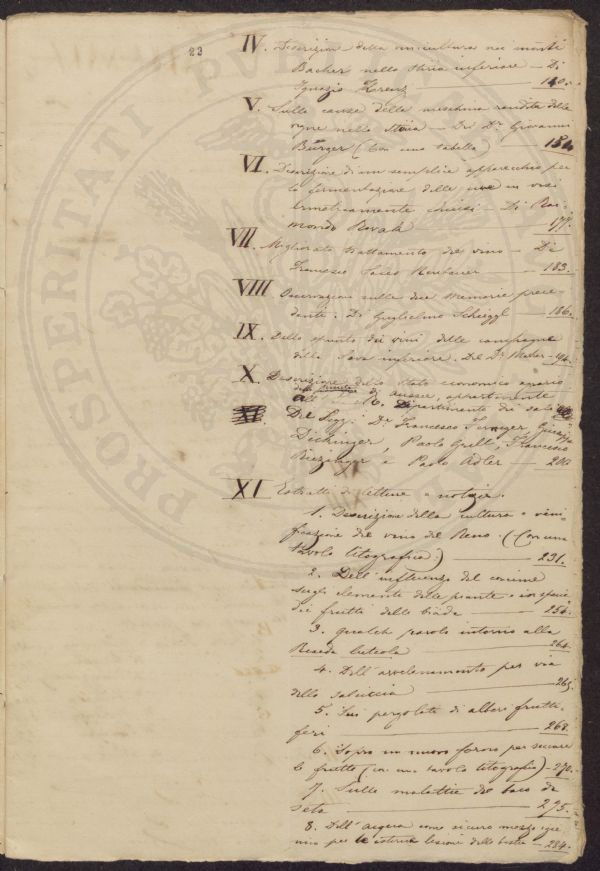 23
IV. Descrizione della viticultura nei monti
Bacher nella Stiria inferiore — Di
Ignazio Lorenz — 140.
V. Sulle cause della meschina rendita delle
vigne nella Stiria — Del Dr. Giovanni
Burger (Con una tabella) — 154
VI. Descrizione di un semplice apparecchio per
la fermentazione delle uve in vasi
ermeticamente chiusi — Di Rai-
mondo Novak — 177.
VII. Migliorato trattamento del vino — Di
Francesco Sacco Neubauer — 183.
VIII Osservazioni sulle due Memorie prece-
denti. Di Guglielmo — 186.
IX. Dello spunto dei vini delle campagne
della Sava inferiore. Del Dr. — 194.
X. Descrizione dello stato economico agrario
di Aussee, appartenente
all' Dipartimento dei sali
XI. Dei Sogg: Dr. Francesco
Dickinger, Paolo Grill, Francesco
e Paolo Adler — 200
XI Estratti di lettere e notizie.
1. Descrizione della cultura e vini-
ficazione del vino del Reno. (Con una
tavola litografica) — 231.
2. Dell' influenza del concime
sugli elementi delle piante e in specie
dei frutti delle biade — 254.
3. Qualche parola intorno alla
Reseda luteola — 264.
4. Dell' avvelenamento per via
della salsiccia — 265.
5. Sui pergolati di alberi frutti-
feri — 268.
6. Sopra un nuovo forno per seccare
le frutta (con una tavola litografica) — 270.
7. Sulle malattie del baco da
seta — 275.
8. Dell' acqua come sicuro mezzo
per le esterne lesioni delle bestie — 284.
PROSPERITATI PUBLICAE